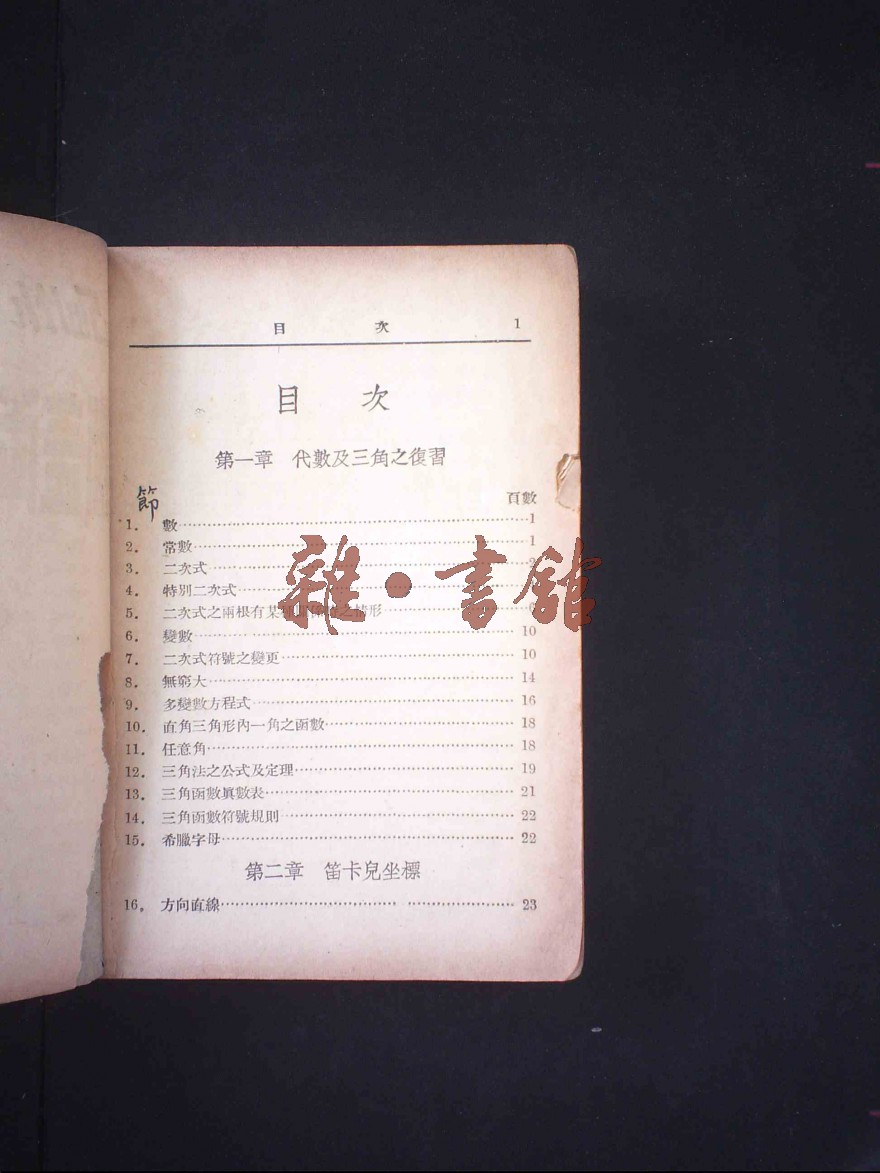 目 次 1
目 次
第一章 代數及三角之復習
節
百數
1. 數 1
2. 常數 1
3. 二次式 2
4. 特別二次式
5. 二次式之兩根有某種 之情形 6
6. 變數 10
7. 二次式符號之變更 10
8. 無窮大 14
9. 多變數方程式 16
10. 直角三角形內一角之函數 18
11. 任意角 18
12. 三角法之公式及定理 19
13. 三角函數填數表 21
14. 三角函數符號規則 22
15. 希臘字母 22
第二章 笛卡兒坐標
16. 方向直線 23
雜·書館